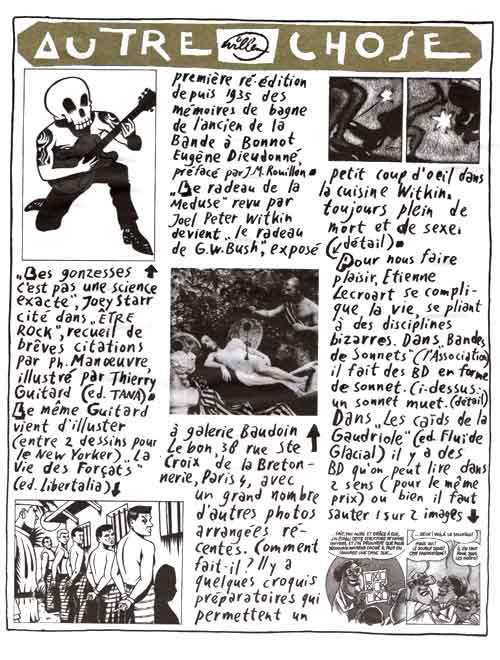 AUTRE Willem CHOSE
"Les gonzesses
c'est pas une science
exacte", Joey Starr
cité dans "ÊTRE
ROCK", recueil de
brêves citations
par Ph. Manœuvre,
illustré par Thierry
Guitard (ed. TANA).
Le même Guitard
vient d'illuster
(entre 2 dessins pour
le New Yorker) "La
Vie des Forçats"
(ed. Libertalia)
première ré-édition
depuis 1935 des
mémoires de bagne
de l'ancien de la
Bande à Bonnot
Eugène Dieudonné,
préfacé par J.M. Rouillon.
"Le radeau de la
Meduse" revu par
Joel Peter Witkin
devient "le radeau
de G.W. Bush", exposé
à galerie Baudoin
Lebon, 38 rue Ste
Croix de la Breton-
nerie, Paris 4, avec
un grand nombre
d'autres photos
arrangées ré-
centes. Comment
fait-il? Il y a
quelques croquis
préparatoires qui
permettent un
petit coup d'oeil dans
la cuisine Witkin,
toujours plein de
mort et de sexe.
(détail).
Pour nous faire
plaisir, Etienne
Lecroart se compli-
que la vie, se pliant
à des disciplines
bizarres. Dans "Bandes
de Sonnets" (l'Association)
il fait des BD en forme
de sonnet. Ci-dessus:
un sonnet muet. (détail)
Dans "Les caïds de la
Gaudriole" (ed. Fluide
Glacial) il y a des
BD qu'on peut lire dans
2 sens ("pour le même
prix) ou bien il faut
sauter 1 sur 2 images